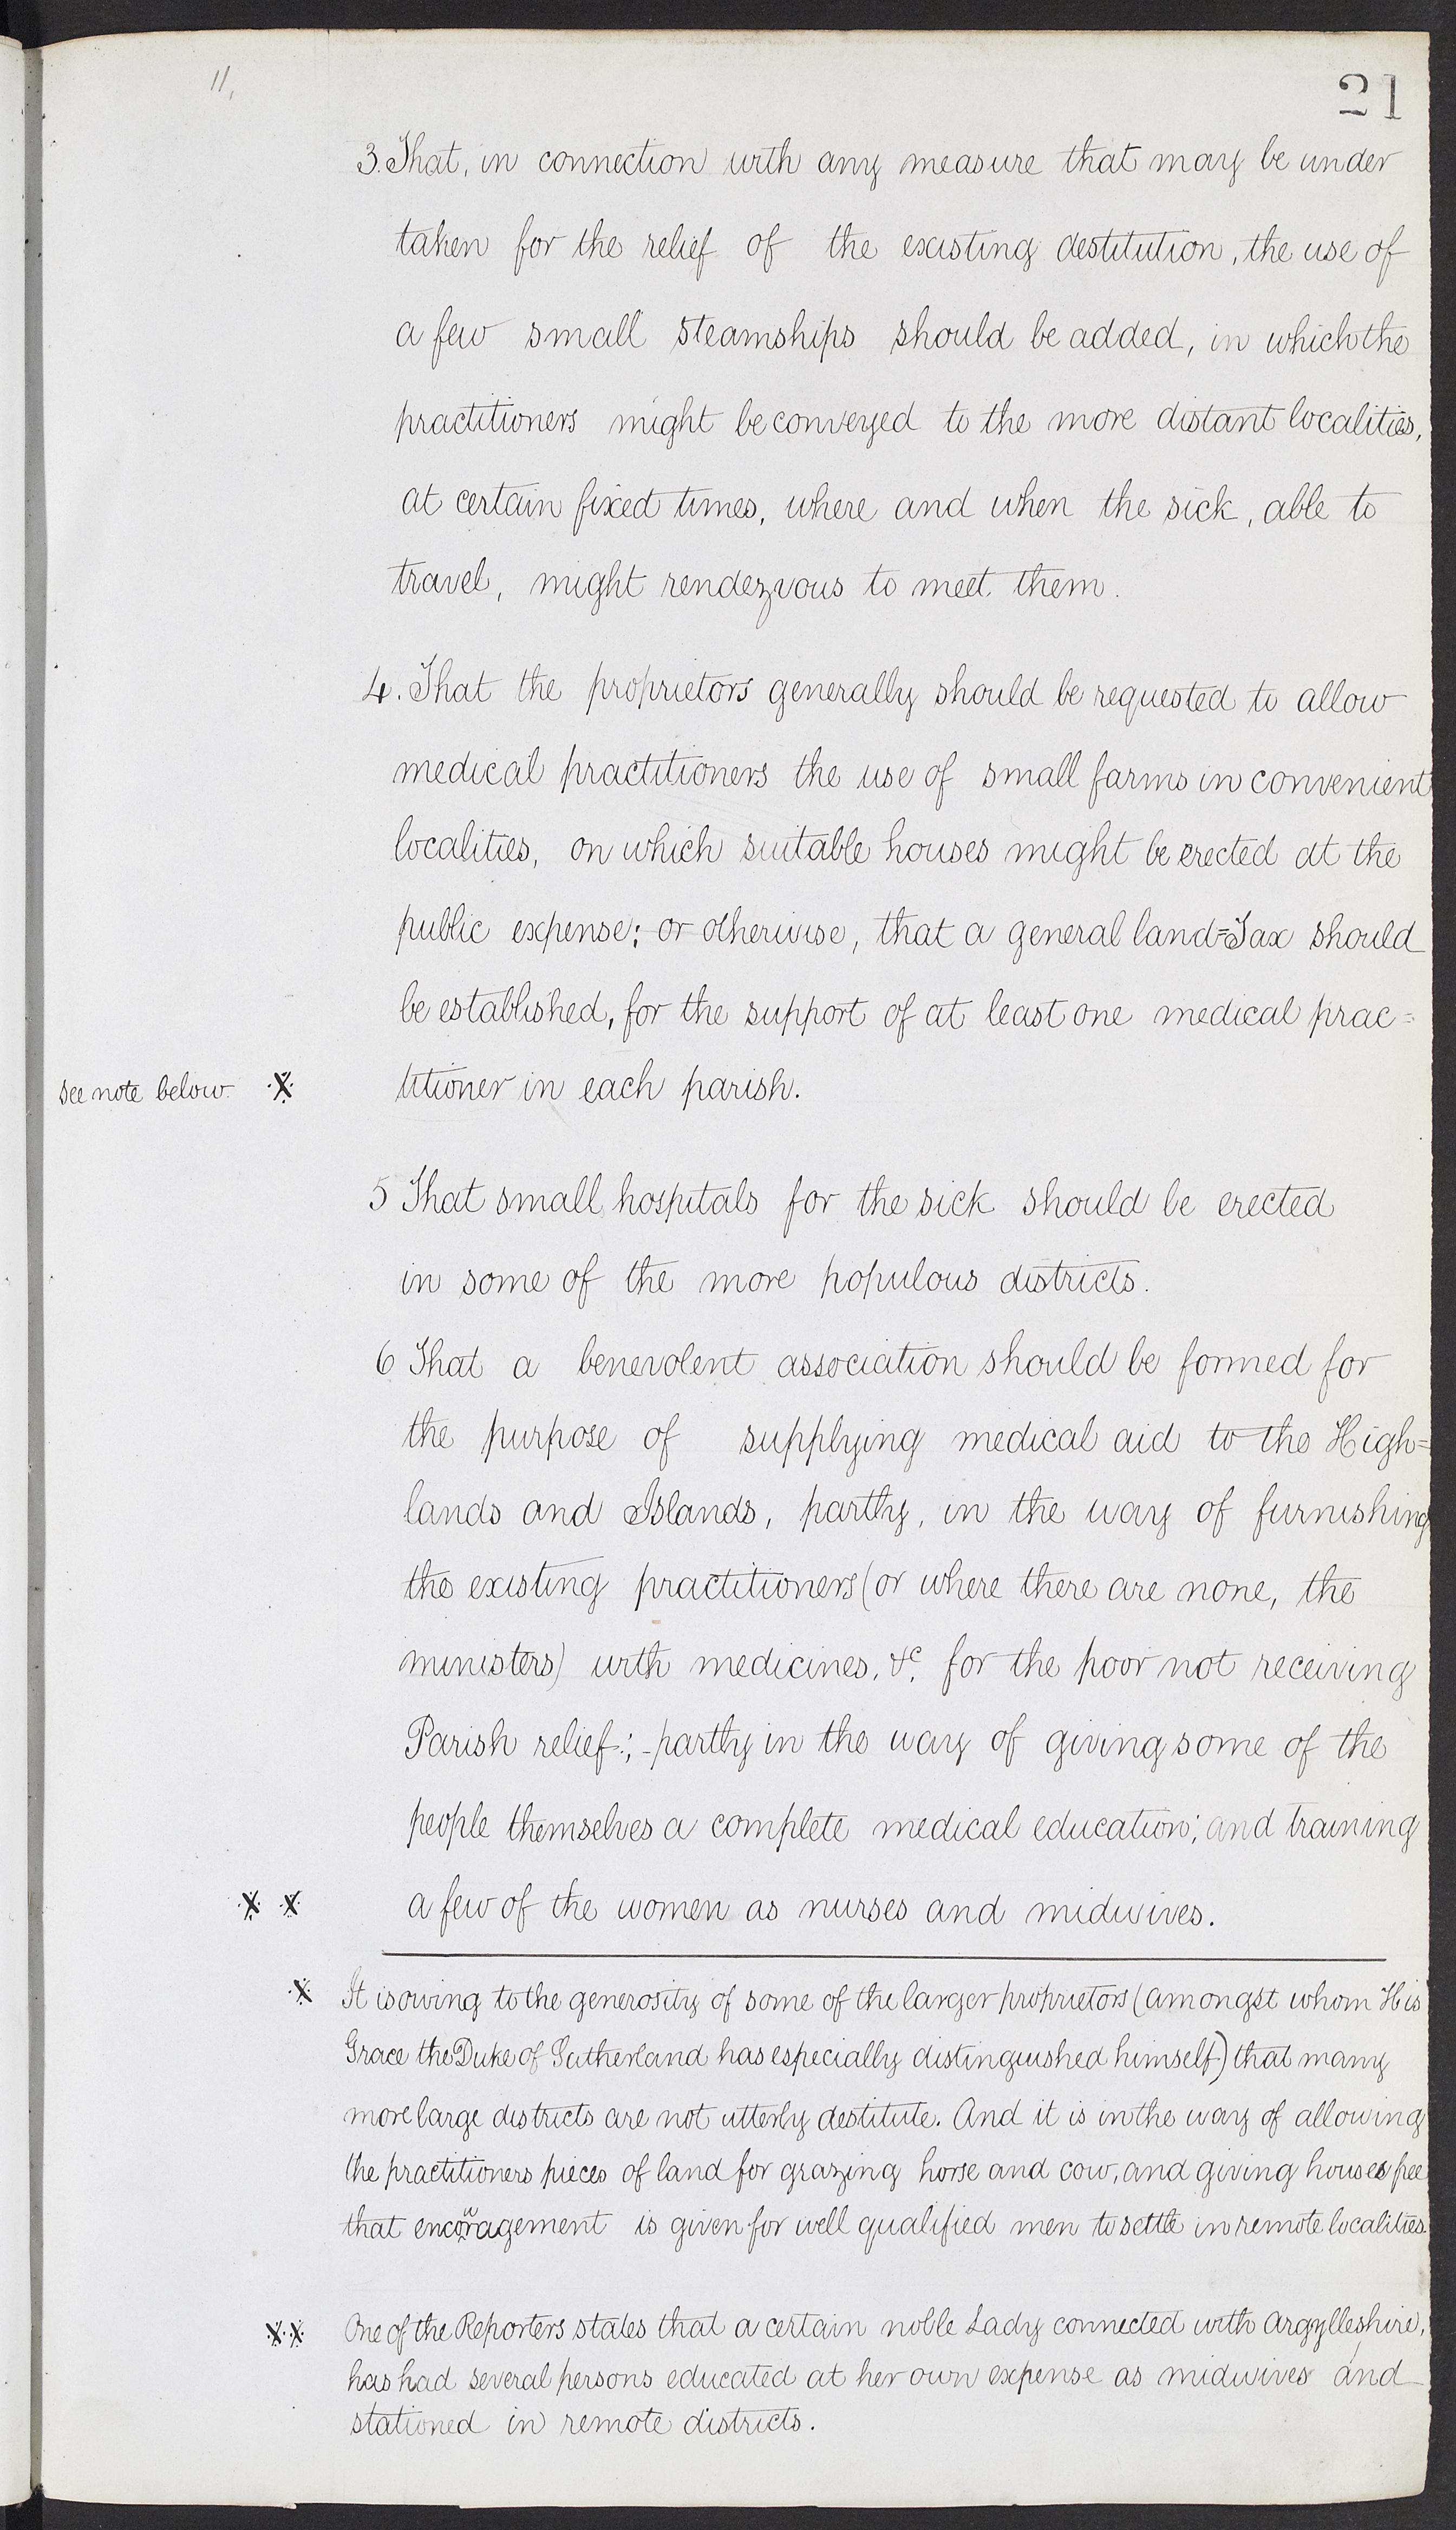 11,
21
3. That, in connection with any measure that may be under
taken for the relief of the existing destitution, the use of
a few small steamships should be added, in which the
practitioners might be conveyed to the more distant localities,
at certain fixed times, where and when the sick, able to
travel, might rendezvous to meet them.
4. That the proprietors generally should be requested to allow
medical practitioners the use of small farms in convenient
localities, on which suitable houses might be erected at the
public expense; or otherwise, that a general land=Tax should
be established, for the support of at least one medical prac=
see note below. X titioner in each parish.
5 That small hospitals for the sick should be erected
in some of the more populous districts.
6 That a benevolent association should be formed for
the purpose of supplying medical aid to the High=
lands and Islands, partly, in the way of furnishing
the existing practitioners (or where there are none, the
ministers) with medicines, &c. for the poor not receiving
Parish relief; - partly in the way of giving some of the
people themselves a complete medical education; and training
X X a few of the women as nurses and midwives.
X It is owing to the generosity of some of the larger proprietors (amongst whom His
Grace the Duke of Sutherland has especially distinguished himself) that many
more large districts are not utterly destitute. And it is in the way of allowing
the practitioners pieces of land for grazing horse and cow, and giving houses free
that encouragement is given for well qualified men to settle in remote localities.
XX One of the Reporters states that a certain noble Lady connected with Argylleshire,
has had several persons educated at her own expense as midwives and
stationed in remote districts.